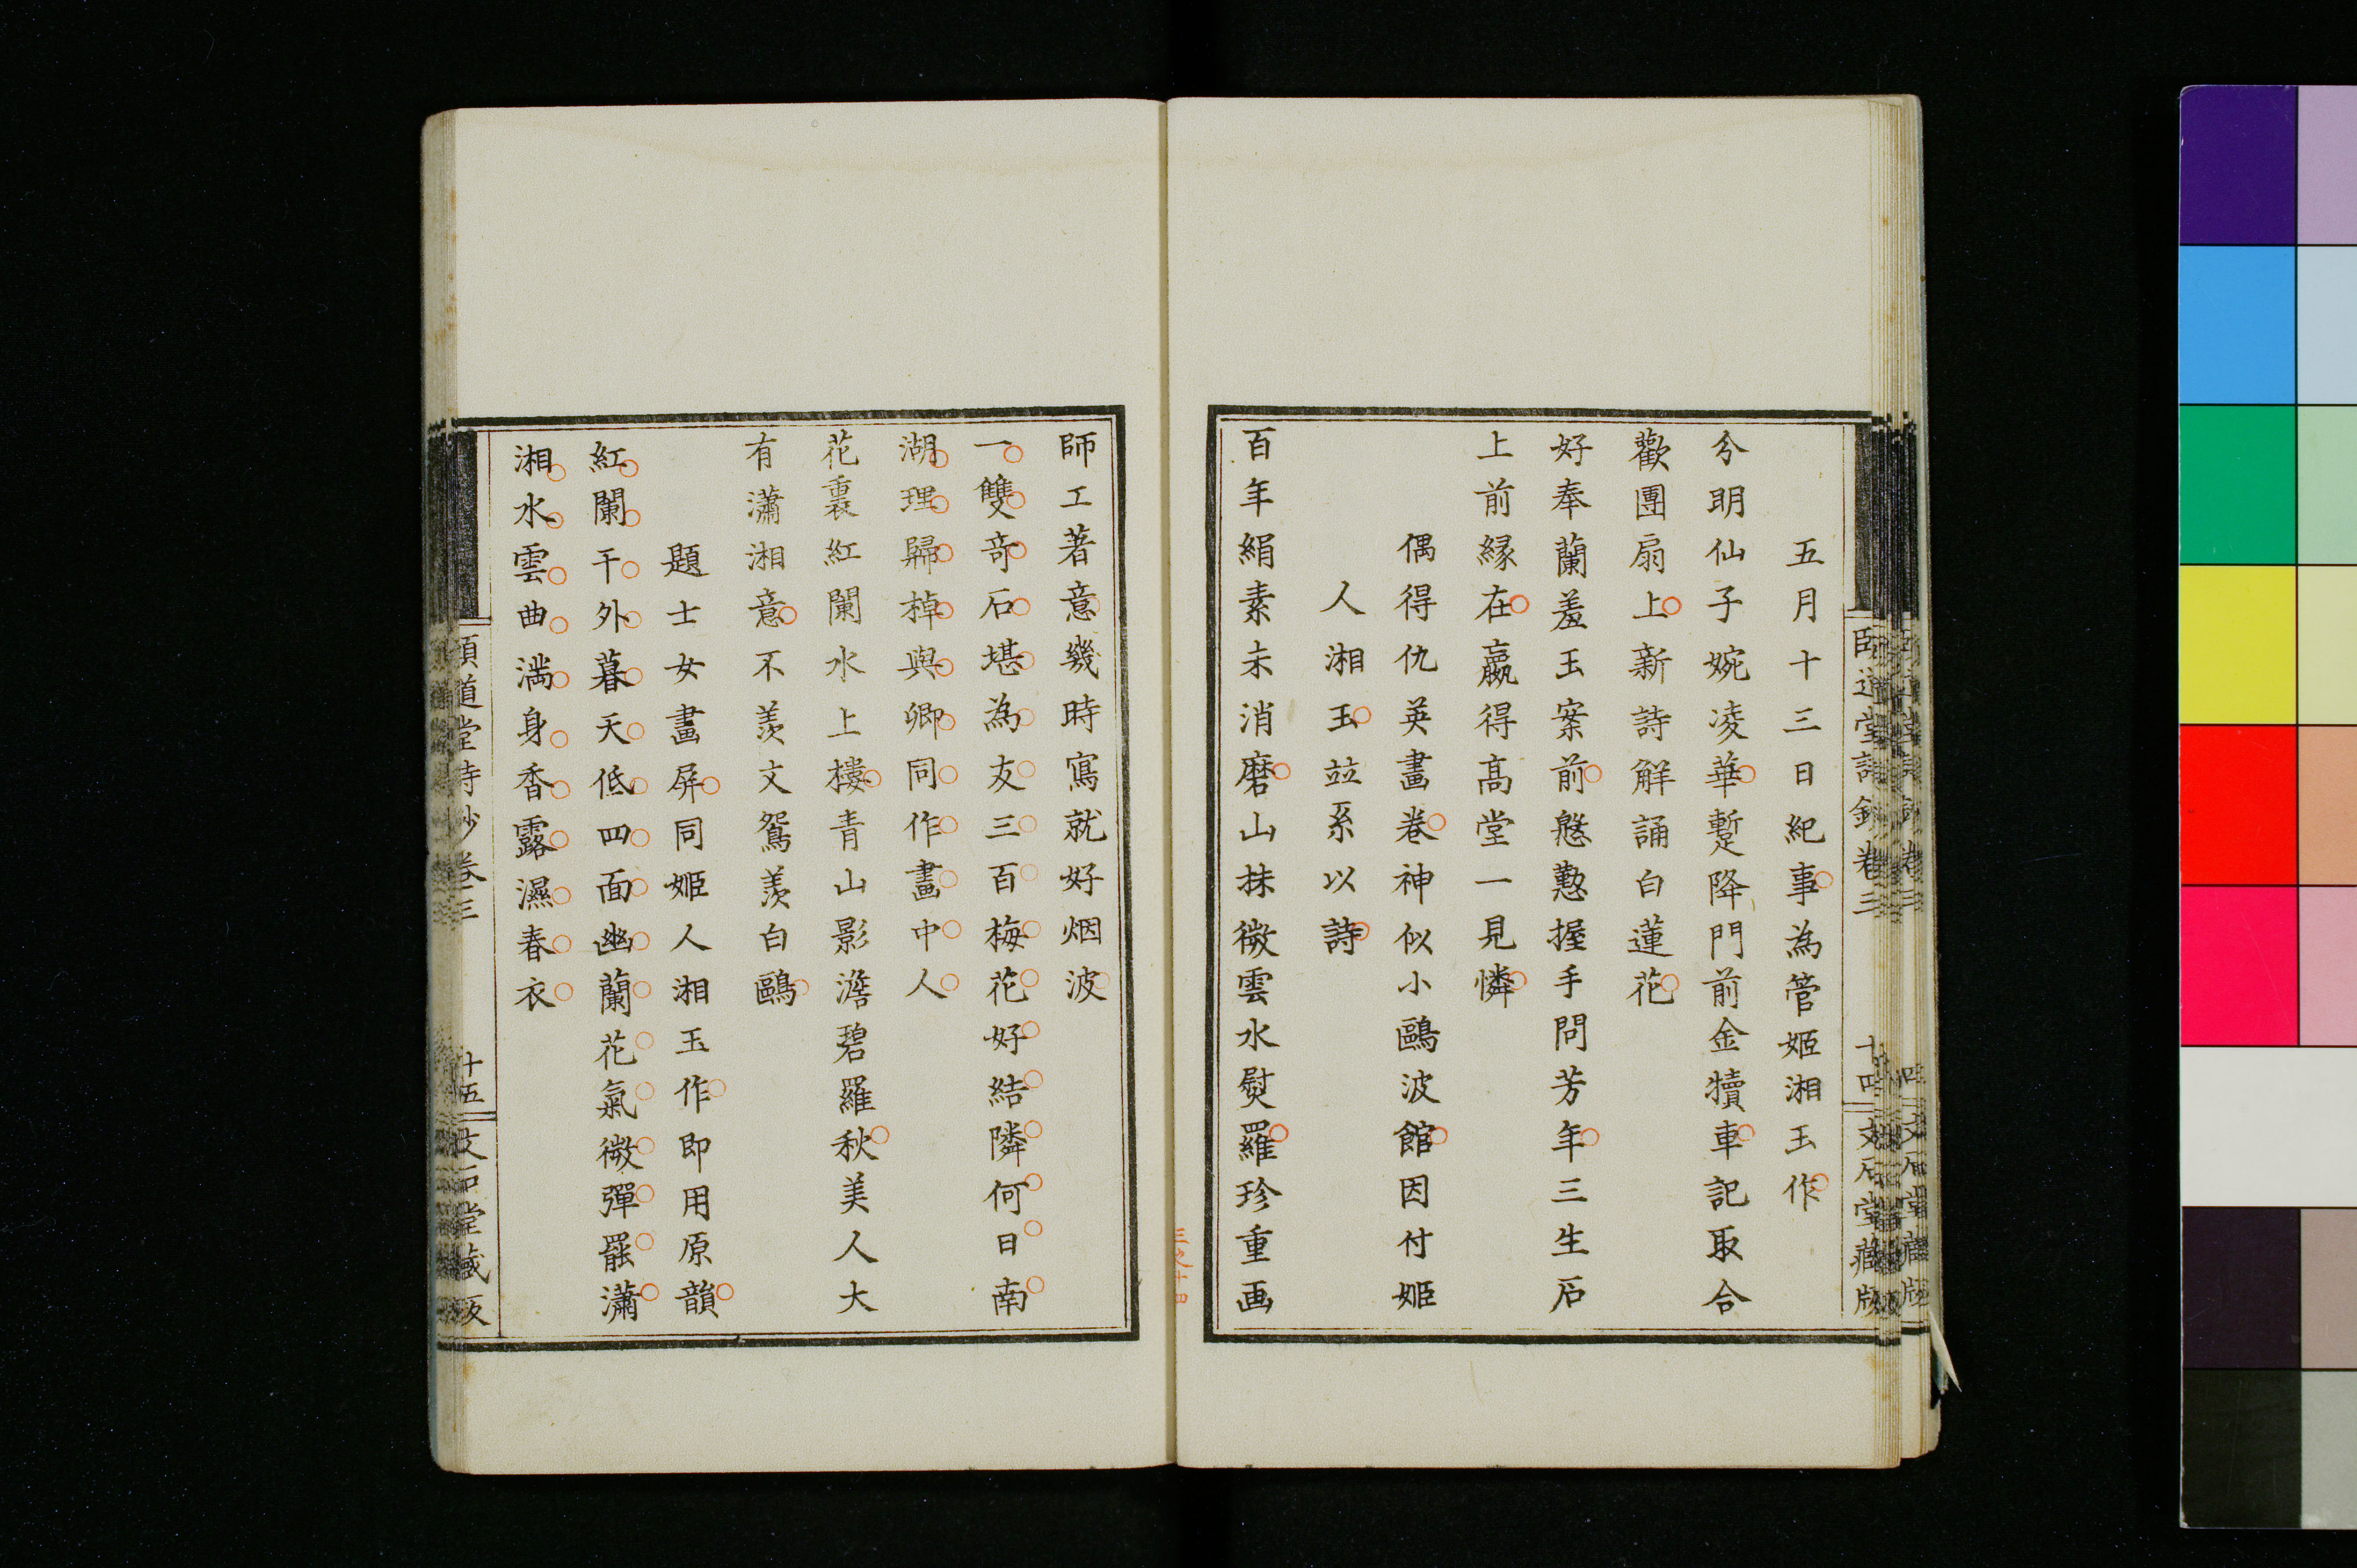 五月十三日紀事為管姬湘玉作
分明仙子婉凌華蹔降門前金犢車記取合
歡團扇上新詩解誦白蓮花
好奉蘭羞玉案前慇懃握手問芳年三生石
上前緣在嬴得高堂一見憐
偶得仇英畫卷神似小鷗波館因付姬
人湘玉竝系以詩
百年絹素未消磨山抹微雲水熨羅珍重画
師工著意幾時寫就好烟波
一雙奇石堪為友三百梅花好結隣何日南
湖理歸棹與卿同作畫中人
花裏紅闌水上樓青山影澹碧羅秋美人大
有瀟湘意不羨文鴛羨白鷗
題士女畫屏同姬人湘玉作即用原韻
紅闌干外暮天低四面幽蘭花氣微彈罷瀟
湘水雲曲滿身香露濕春衣
頤道堂詩鈔卷三
十五
文石堂藏版
頤道堂詩鈔卷三
十四
文石堂藏版